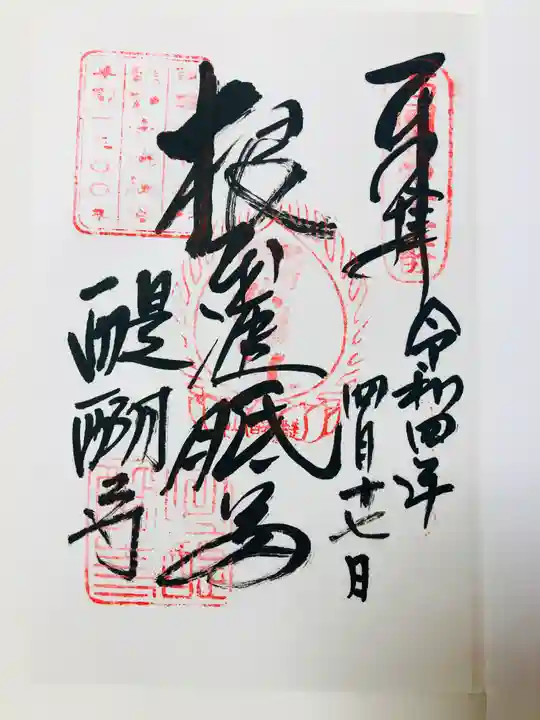 奉拝
令和四年
四月十七日
根本准胝尊
醍醐寺